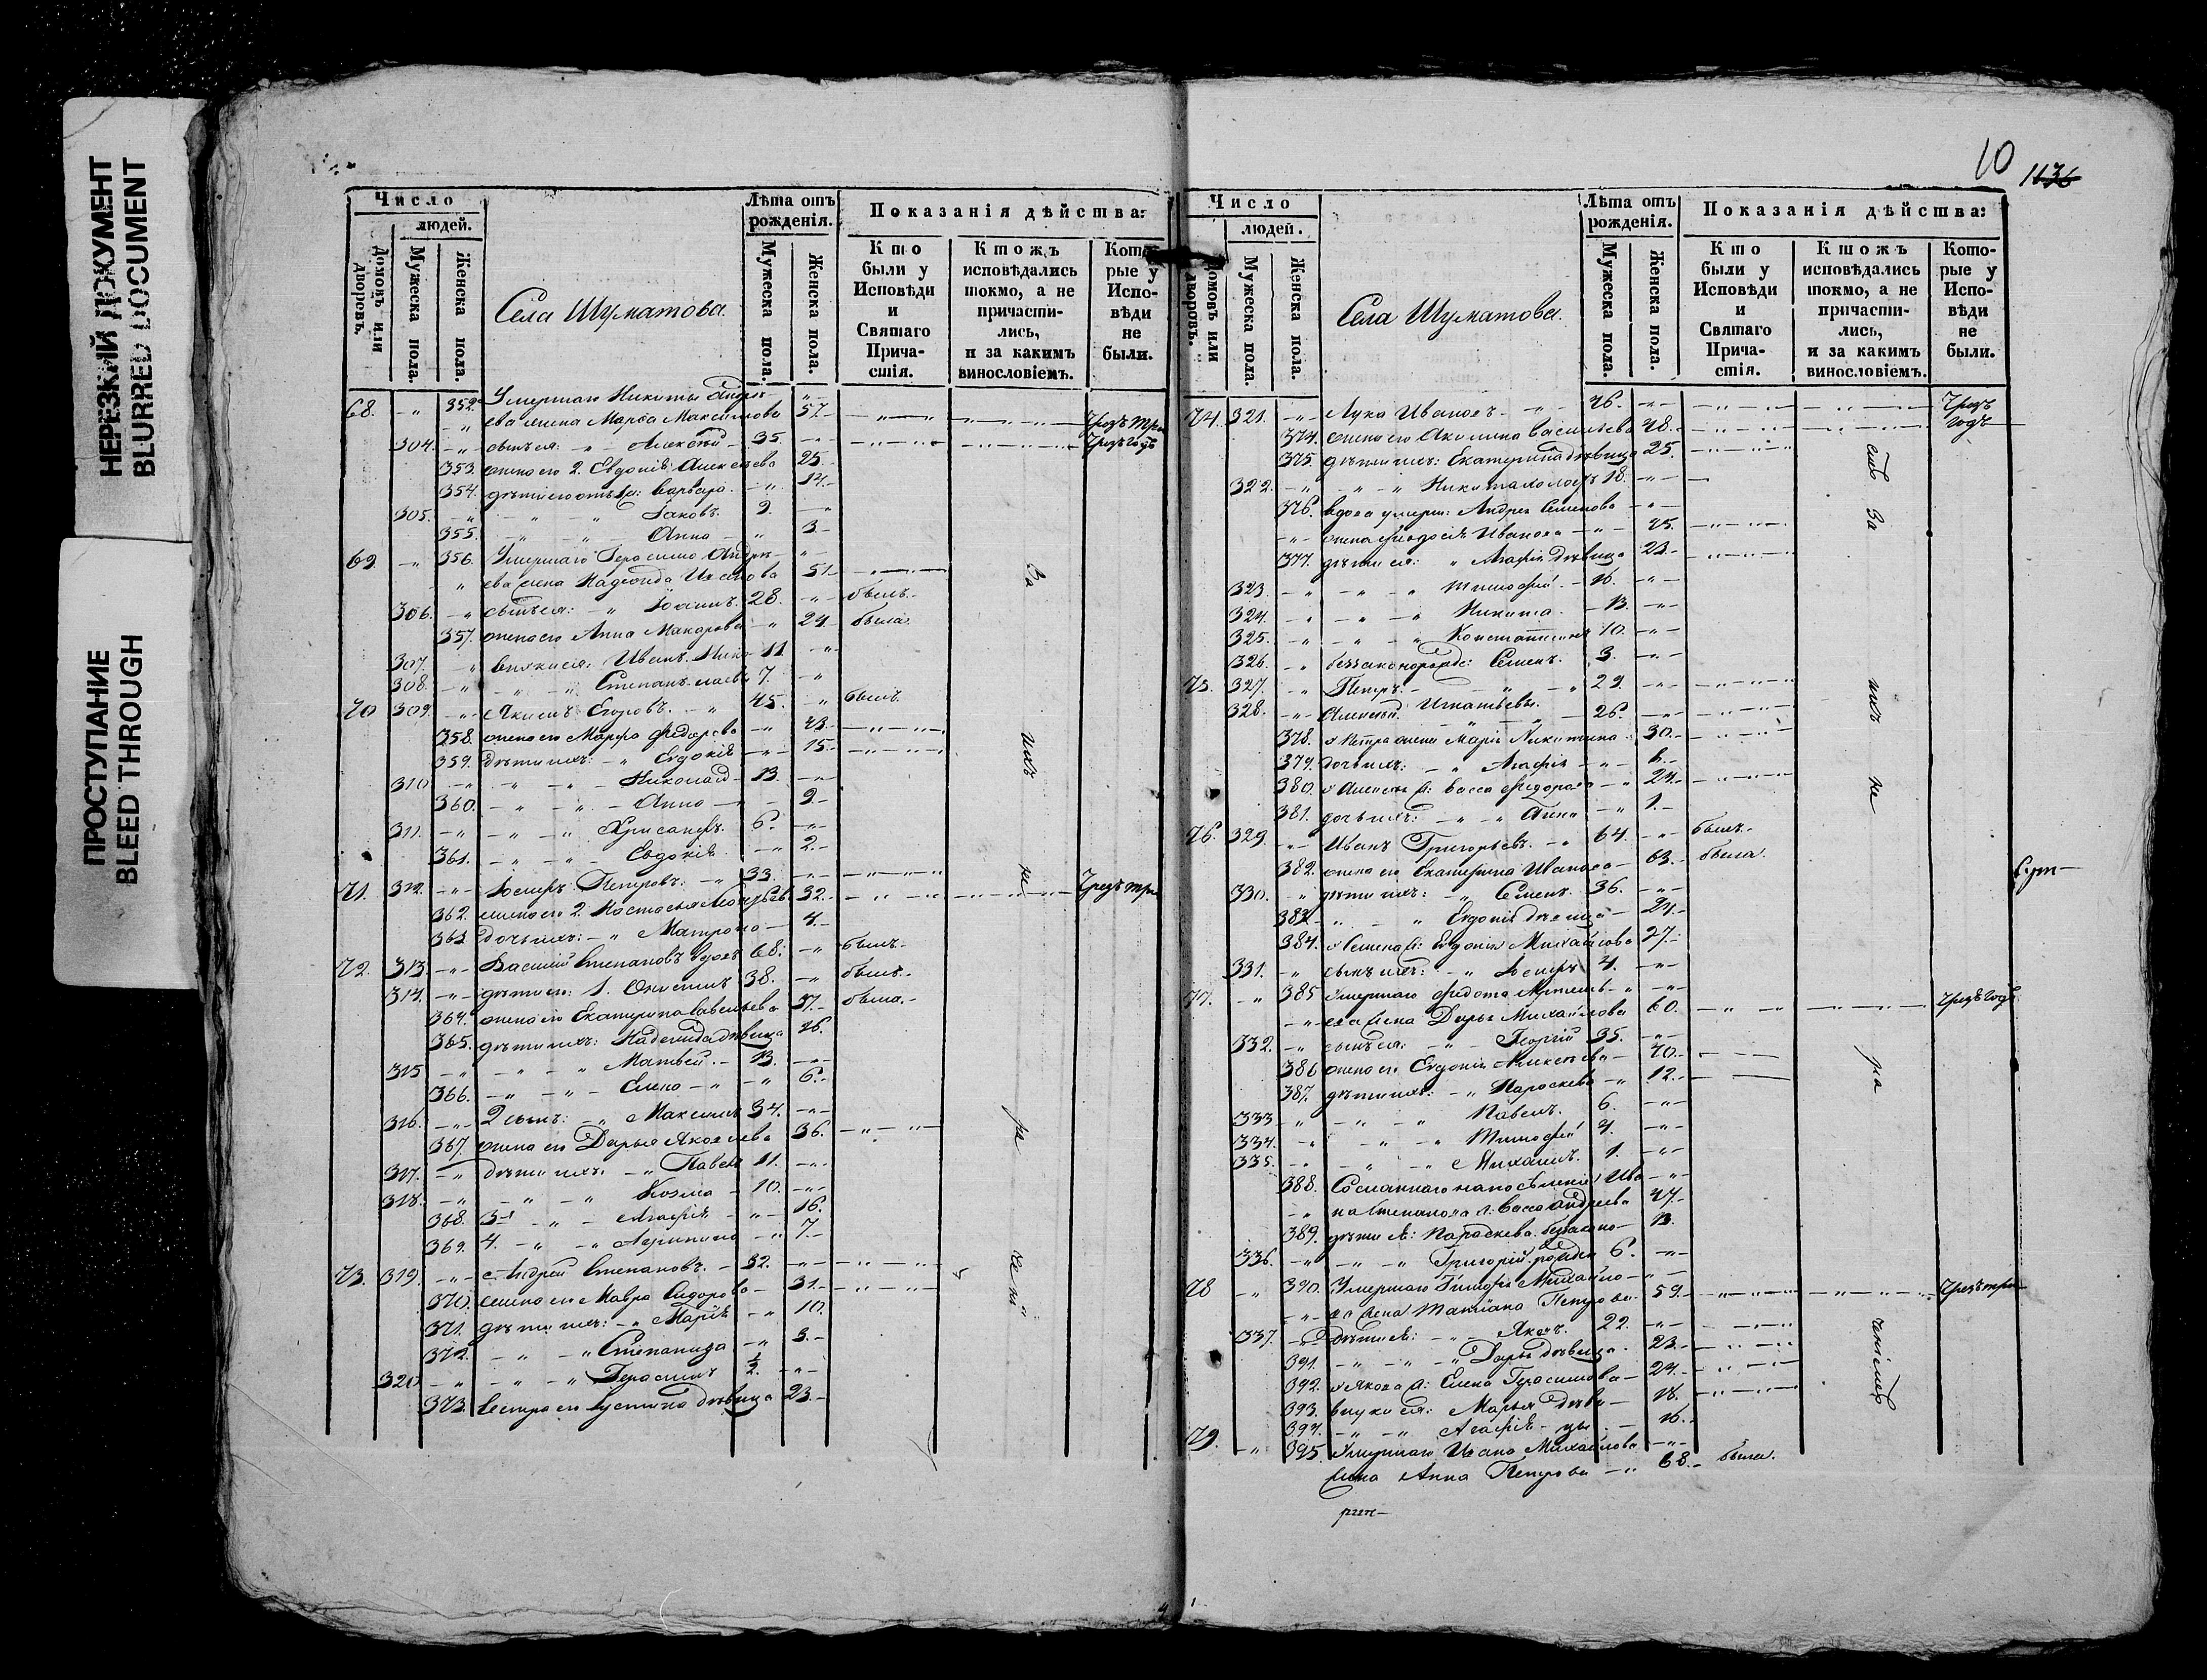 НЕРЕЗКИЙ ДОКУМЕНТ
BLURRED DOCUMENT
ПРОСТУПАНИЕ
BLEED THROUGH
Число
людей.
домовъ или дворовъ.
Мужеска пола.
Женска пола.
Села Шуматова.
Лѣта отъ рожденія.
Мужеска пола.
Женска пола.
Показанія дѣйства:
Кто были у Исповѣди и Святаго Причастія.
Ктожъ исповѣдались токмо, а не причастились, и за какимъ винословіемъ.
Которые у Исповѣди не были.
68. 352. Умершаго Никиты Андре-
ева жена Марѳа Максимова 57.
304. сынъ ея: Алексѣй 35. Чрезъ годъ
353. жена его 2. Евдокія Алексѣева 25.
354. дѣти его отъ 1й: Варвара 14.
305. Іаковъ. 9.
355. Анна 3.
69 356. Умершаго Герасима Андре-
ева жена Надежда 51.
306. сынъ ея: 28. былъ.
357. жена его Анна Макарова 29. была.
307. внуки ея: Иванъ Нико- 11.
308. Степанъ лаевы 7.
70 309. Якимъ Егоровъ. 45. былъ.
358. жена его Марфа Федорова 43.
359. дѣти ихъ: Евдокія 15.
310. Николай 13.
360. Анна 9.
311. Хрисанфъ. 6.
361. Евдокія. 2.
71. 312. Іосифъ Петровъ. 33. Чрезъ три
362. жена его 2. Настасья 32.
363. дочь ихъ: Матрона 4.
72. 313. Василій Степановъ вдовъ 68. былъ.
314. дѣти его: 1. Онисимъ 38. былъ.
364. жена его Екатерина Савельева 37. была.
365. дѣти ихъ: Надежда дѣвица 16.
315. Матвей. 13.
366. Елена 6.
316. 2 сынъ: Максимъ 34.
367. жена его Дарья Яковлева 36.
317. дѣти ихъ: Павелъ 11.
318. Козма 10.
368. 3. Агафія 16.
369. 4. Агрипина 7.
73. 319. Андрей Степановъ. 32.
370. жена его Мавра Сидорова 31.
371. дѣти ихъ: Марія 10.
372. Степанида 3.
320. Герасимъ ½.
373. сестра его Устина дѣвица 23.
За
ихъ
не
ра
10
1136
Число
людей.
домовъ или дворовъ.
Мужеска пола.
Женска пола.
Села Шуматова.
Лѣта отъ рожденія.
Мужеска пола.
Женска пола.
Показанія дѣйства:
Кто были у Исповѣди и Святаго Причастія.
Ктожъ исповѣдались токмо, а не причастились, и за какимъ винословіемъ.
Которые у Исповѣди не были.
74. 321. Лука Ивановъ 46. Чрезъ годъ
374. жена его Акилина Васильева 48.
375. дѣти ихъ: Екатерина дѣвица 25.
322. Никита холостъ 18.
376. вдова умерш: Андрея Семенова
жена Феодосія Иванова 45.
377. дѣти ея: Агафія дѣвица 23.
323. Тимофей. 16.
324. Никита. 13.
325. Константинъ 10.
326. незаконорожд: Семенъ. 3.
75. 327. Петръ 29.
328. Алексѣй Игнатьевы. 26.
378. у Петра жена Марія Никитина 30.
379. дочь ихъ: Агафія 6.
380. у Алексѣя ж: Васса Федорова 24.
381. дочь ихъ: Анна 1.
76. 329. Иванъ Григорьевъ. 64. былъ.
382. жена его Екатерина Иванова 63. была.
330. дѣти ихъ: Семенъ. 36.
383. Евдокія дѣвица 24.
384. у Семена ж: Евдокія Михайлова 27.
331. сынъ ихъ: Іосифъ 4.
77. 385. Умершаго Федота
ева жена Дарья Михайлова 60. чрезъ годъ
332. сынъ ея: Георгій 35.
386. жена его Евдокія Алексѣева 40.
387. дѣти ихъ: Параскева 12.
333. Павелъ. 6.
334. Тимофей 4.
335. Михаилъ. 1.
388. Сосланнаго на поселеніе Ива-
на Степанова ж: Васса Андреева 47.
389. дѣти ея: Параскева 13.
336. Григорій 6.
78 390. Умершаго Тимофея Михайло-
ва жена Татіана Петрова 59. Чрезъ три
337. дѣти ея: Яковъ. 22.
391. Дарья дѣвица. 23.
392. у Якова ж: Елена Герасимова 24.
393. внуки ея: Марья дѣви- 18.
394. Агафія цы 16.
79. 395. Умершаго Ивана Михайлова
жена Анна Петрова 68. была.
За
ихъ
не
ра